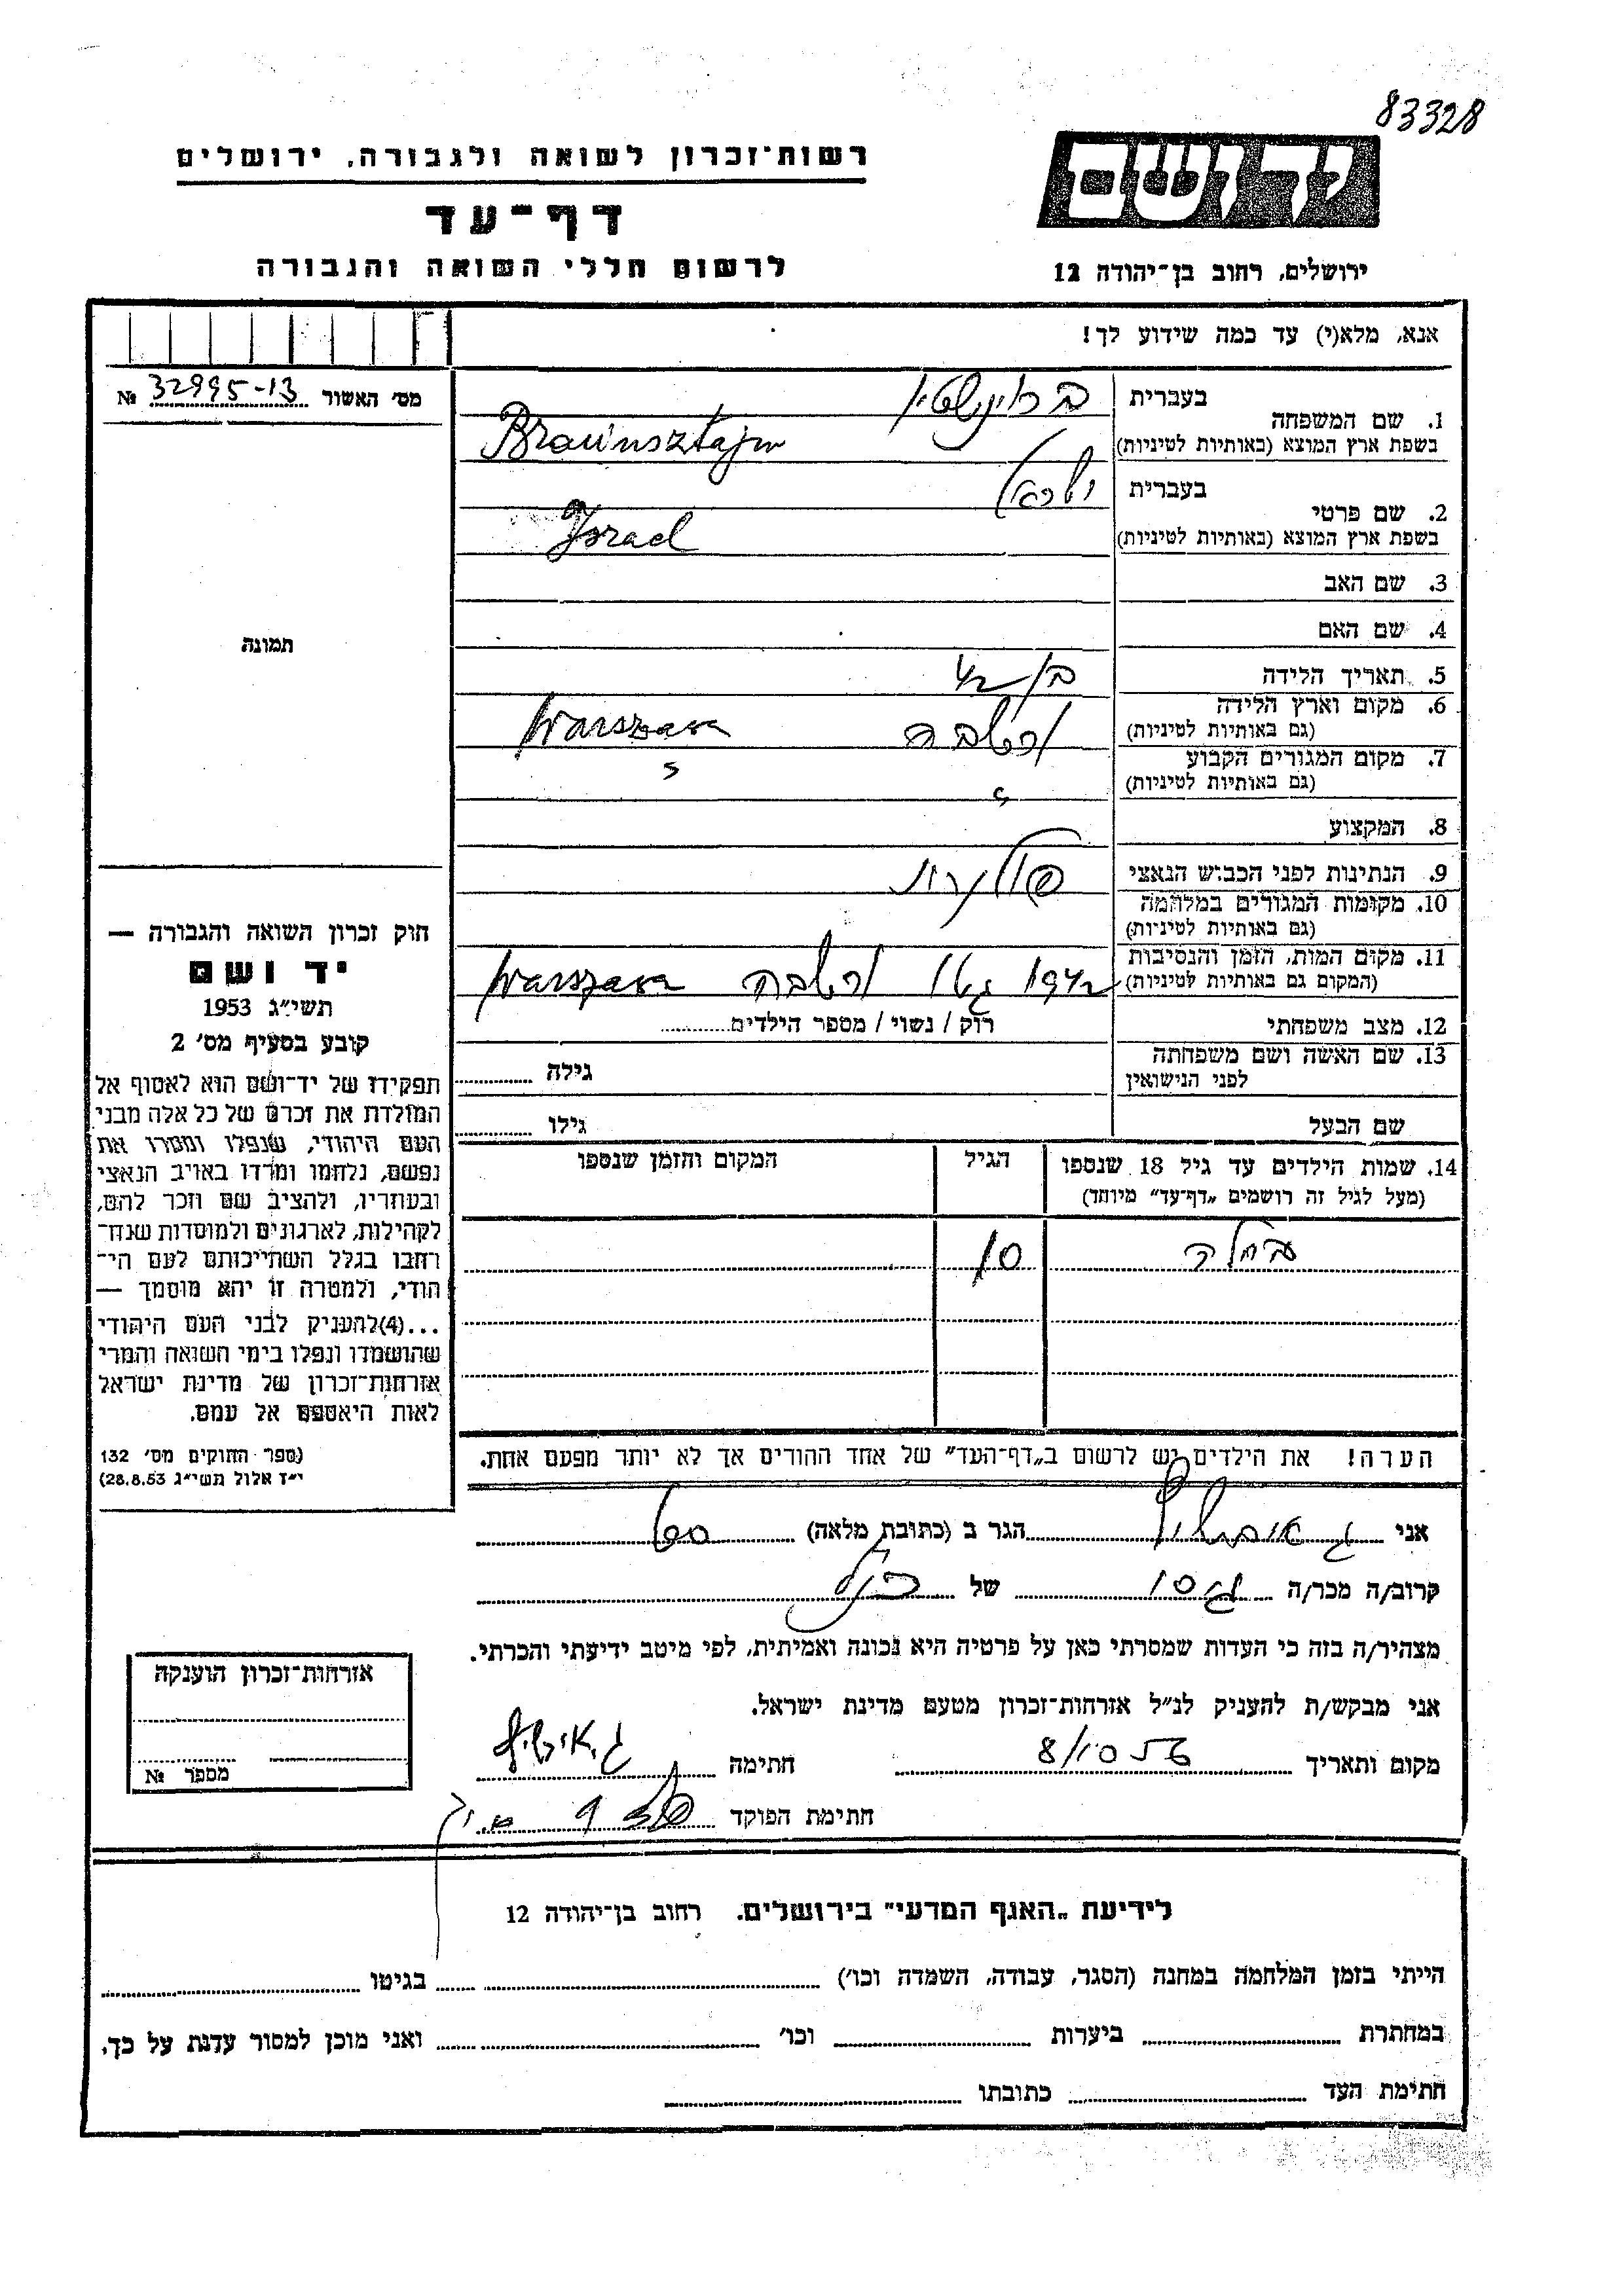 83328
ידושם
רשות־זכרון לשואה ולגבורה, ירושלים
דף־עד
לרשום חללי השואה והגבורה
ירושלים, רחוב בן־יהודה 12
אנא, מלא(י) עד כמה שידוע לך!
מס' האשור 32995-13 №
תמונה
1. שם המשפחה
בעברית בראונשטין
בשפת ארץ המוצא (באותיות לטיניות) Braunsztajn
2. שם פרטי
בעברית ישראל
בשפת ארץ המוצא (באותיות לטיניות) Israel
3. שם האב
4. שם האם
5. תאריך הלידה בן 42
6. מקום וארץ הלידה
(גם באותיות לטיניות) ורשבה Warszawa
7. מקום המגורים הקבוע
(גם באותיות לטיניות) " "
8. המקצוע
9. הנתינות לפני הכבוש הנאצי פולנית
10. מקומות המגורים במלחמה
(גם באותיות לטיניות)
11. מקום המות, הזמן והנסיבות
(המקום גם באותיות לטיניות) 1942 גטו ורשבה Warszawa
12. מצב משפחתי רוק / נשוי / מספר הילדים
13. שם האשה ושם משפחתה
לפני הנישואין גילה
שם הבעל גילו
14. שמות הילדים עד גיל 18 שנספו
(מעל לגיל זה רושמים „דף־עד" מיוחד)
הגיל
המקום והזמן שנספו
10
הערה! את הילדים יש לרשום ב„דף־העד" של אחד ההורים אך לא יותר מפעם אחת.
חוק זכרון השואה והגבורה —
יד ושם
תשי״ג 1953
קובע בסעיף מס' 2
תפקידו של יד־ושם הוא לאסוף אל
המולדת את זכרם של כל אלה מבני
העם היהודי, שנפלו ומסרו את
נפשם, נלחמו ומרדו באויב הנאצי
ובעוזריו, ולהציב שם וזכר להם,
לקהילות, לארגונים ולמוסדות שנח־
רבו בגלל השתייכותם לעם הי־
הודי, ולמטרה זו יהא מוסמך —
...(4)להעניק לבני העם היהודי
שהושמדו ונפלו בימי השואה והמרי
אזרחות־זכרון של מדינת ישראל
לאות היאספם אל עמם.
(ספר החוקים מס' 132
י״ז אלול תשי״ג 28.8.53)
אני הגר ב (כתובת מלאה)
קרוב/ה מכר/ה גיסו של הנ״ל
מצהיר/ה בזה כי העדות שמסרתי כאן על פרטיה היא נכונה ואמיתית, לפי מיטב ידיעתי והכרתי.
אני מבקש/ת להעניק לנ״ל אזרחות־זכרון מטעם מדינת ישראל.
מקום ותאריך 8/10 55 חתימה
חתימת הפוקד
אזרחות־זכרון הוענקה
מספר №
לידיעת „האגף המדעי" בירושלים. רחוב בן־יהודה 12
הייתי בזמן המלחמה במחנה (הסגר, עבודה, השמדה וכו') בגיטו
במחתרת ביערות וכו' ואני מוכן למסור עדות על כך,
חתימת העד כתובתו